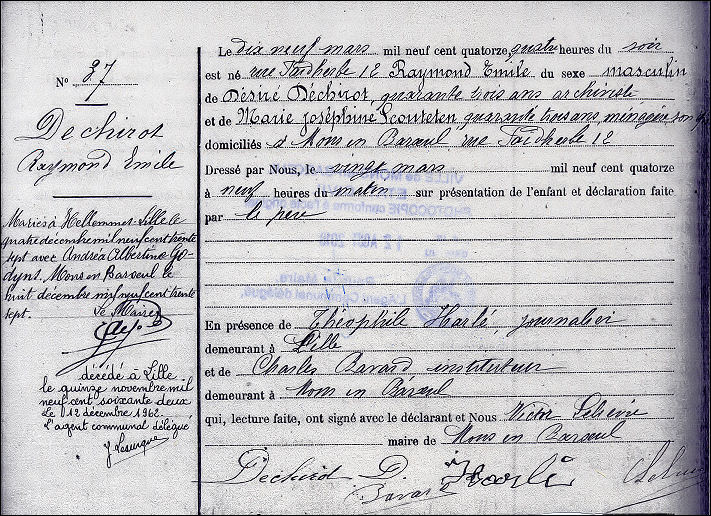 N° 37
Dechirot
Raymond Emile
Mariés à Hellemmes-Lille le
quatre décembre mil neuf cent trente
sept avec Andréa Albertine Go-
dyns. Mons en Baroeul le
huit décembre mil neuf cent trente
sept. Le Maire
décédé à Lille
le quinze novembre mil
neuf cent soixante deux
Le 12 décembre 1962
L'agent communal délégué
Le dix neuf mars mil neuf cent quatorze, quatre heures du soir
est né rue Faidherbe 12 Raymond Emile du sexe masculin
de Désiré Déchirot, quarante trois ans
et de Marie Joséphine Scouteten quarante trois ans, ménagère son
domiciliés à Mons en Baroeul rue Faidherbe 12
Dressé par Nous, le vingt mars mil neuf cent quatorze
à neuf heures du matin sur présentation de l'enfant et déclaration faite
par le père
En présence de Théophile Harlé, journalier
demeurant à Lille
et de Charles Bavard instituteur
demeurant à Mons en Baroeul
qui, lecture faite, ont signé avec le déclarant et Nous Victor Lelievre
maire de Mons en Baroeul
Dechirot D. Harlé
Bavard